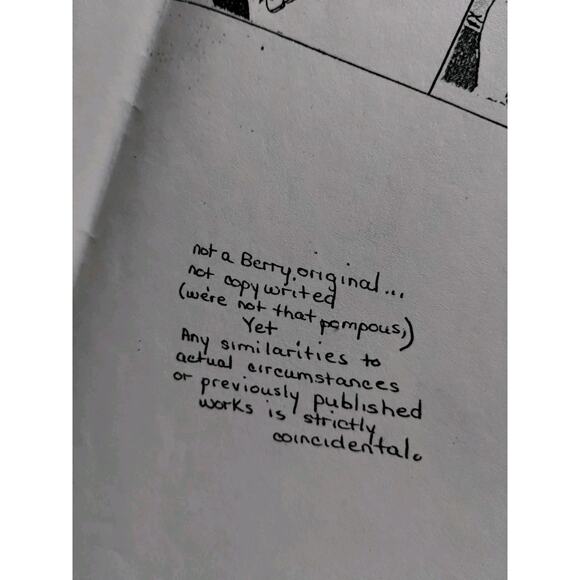 not a Berry original...
not copywrited
(we're not that pompous,)
Yet
Any similarities to
actual circumstances
or previously published
works is strictly
coincidental.